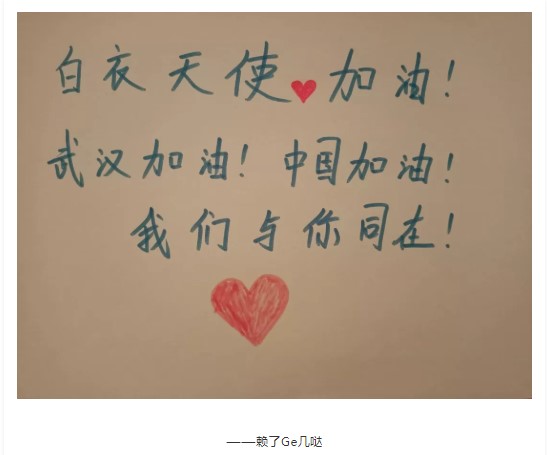 白衣天使♥加油!
武汉加油!中国加油!
我们与你同在!
——赖了Ge几哒